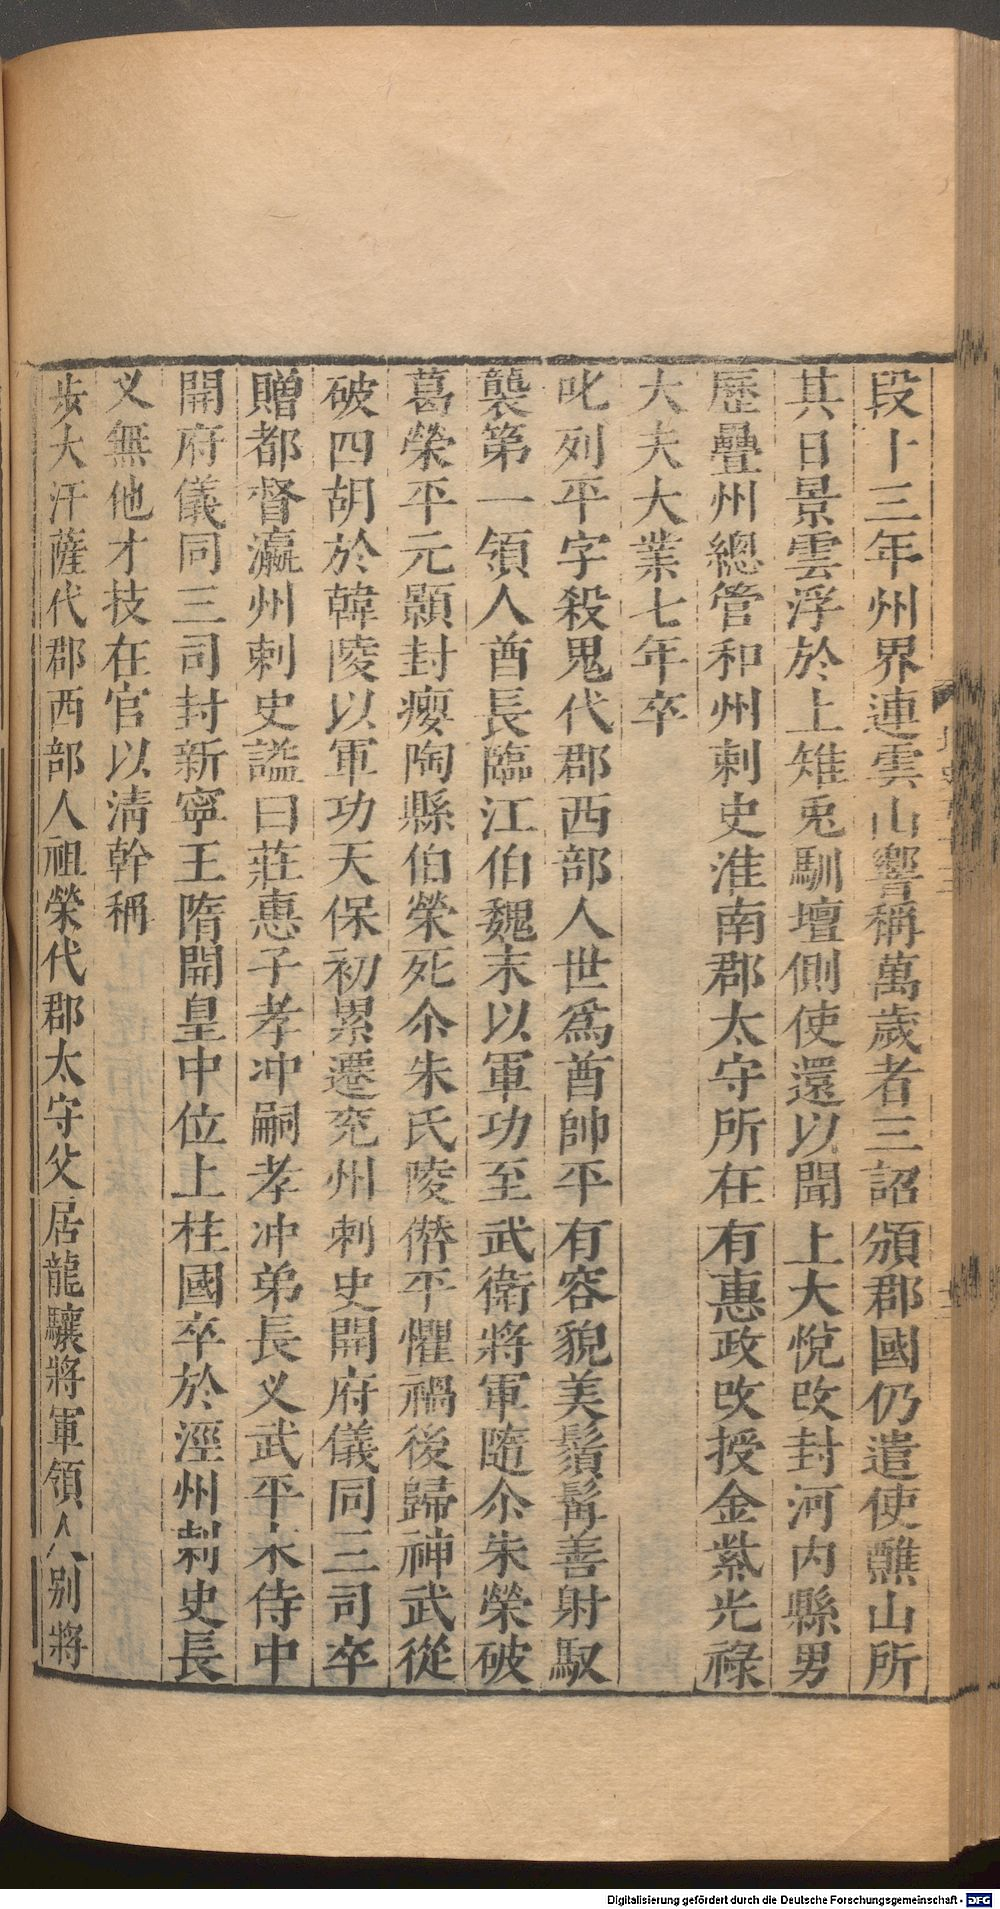 段十三年州界連雲山響稱萬歲者三詔頒郡國仍遣使醮山所
其日景雲浮於上雉兎馴壇側使還以聞上大悅改封河内縣男
歷疊州總管和州刺史淮南郡太守所在有惠政改授金紫光祿
大夫大業七年卒
叱列平字殺鬼代郡西部人世爲酋帥平有容貌美鬚髯善射馭
襲第一領人酋長臨江伯魏末以軍功至武衛將軍隨尒朱榮破
葛榮平元顥封癭陶縣伯榮死尒朱氏陵僭平懼禍後歸神武從
破四胡於韓陵以軍功天保初累遷兖州刺史開府儀同三司卒
贈都督瀛州刺史謚曰莊惠子孝冲嗣孝冲弟長义武平末侍中
開府儀同三司封新寧王隋開皇中位上柱國卒於涇州刺史長
义無他才技在官以清幹稱
步大汗薩代郡西部人祖榮代郡太守父居龍驤將軍領人别將
Digitalisierung gefördert durch die Deutsche Forschungsgemeinschaft - DFG